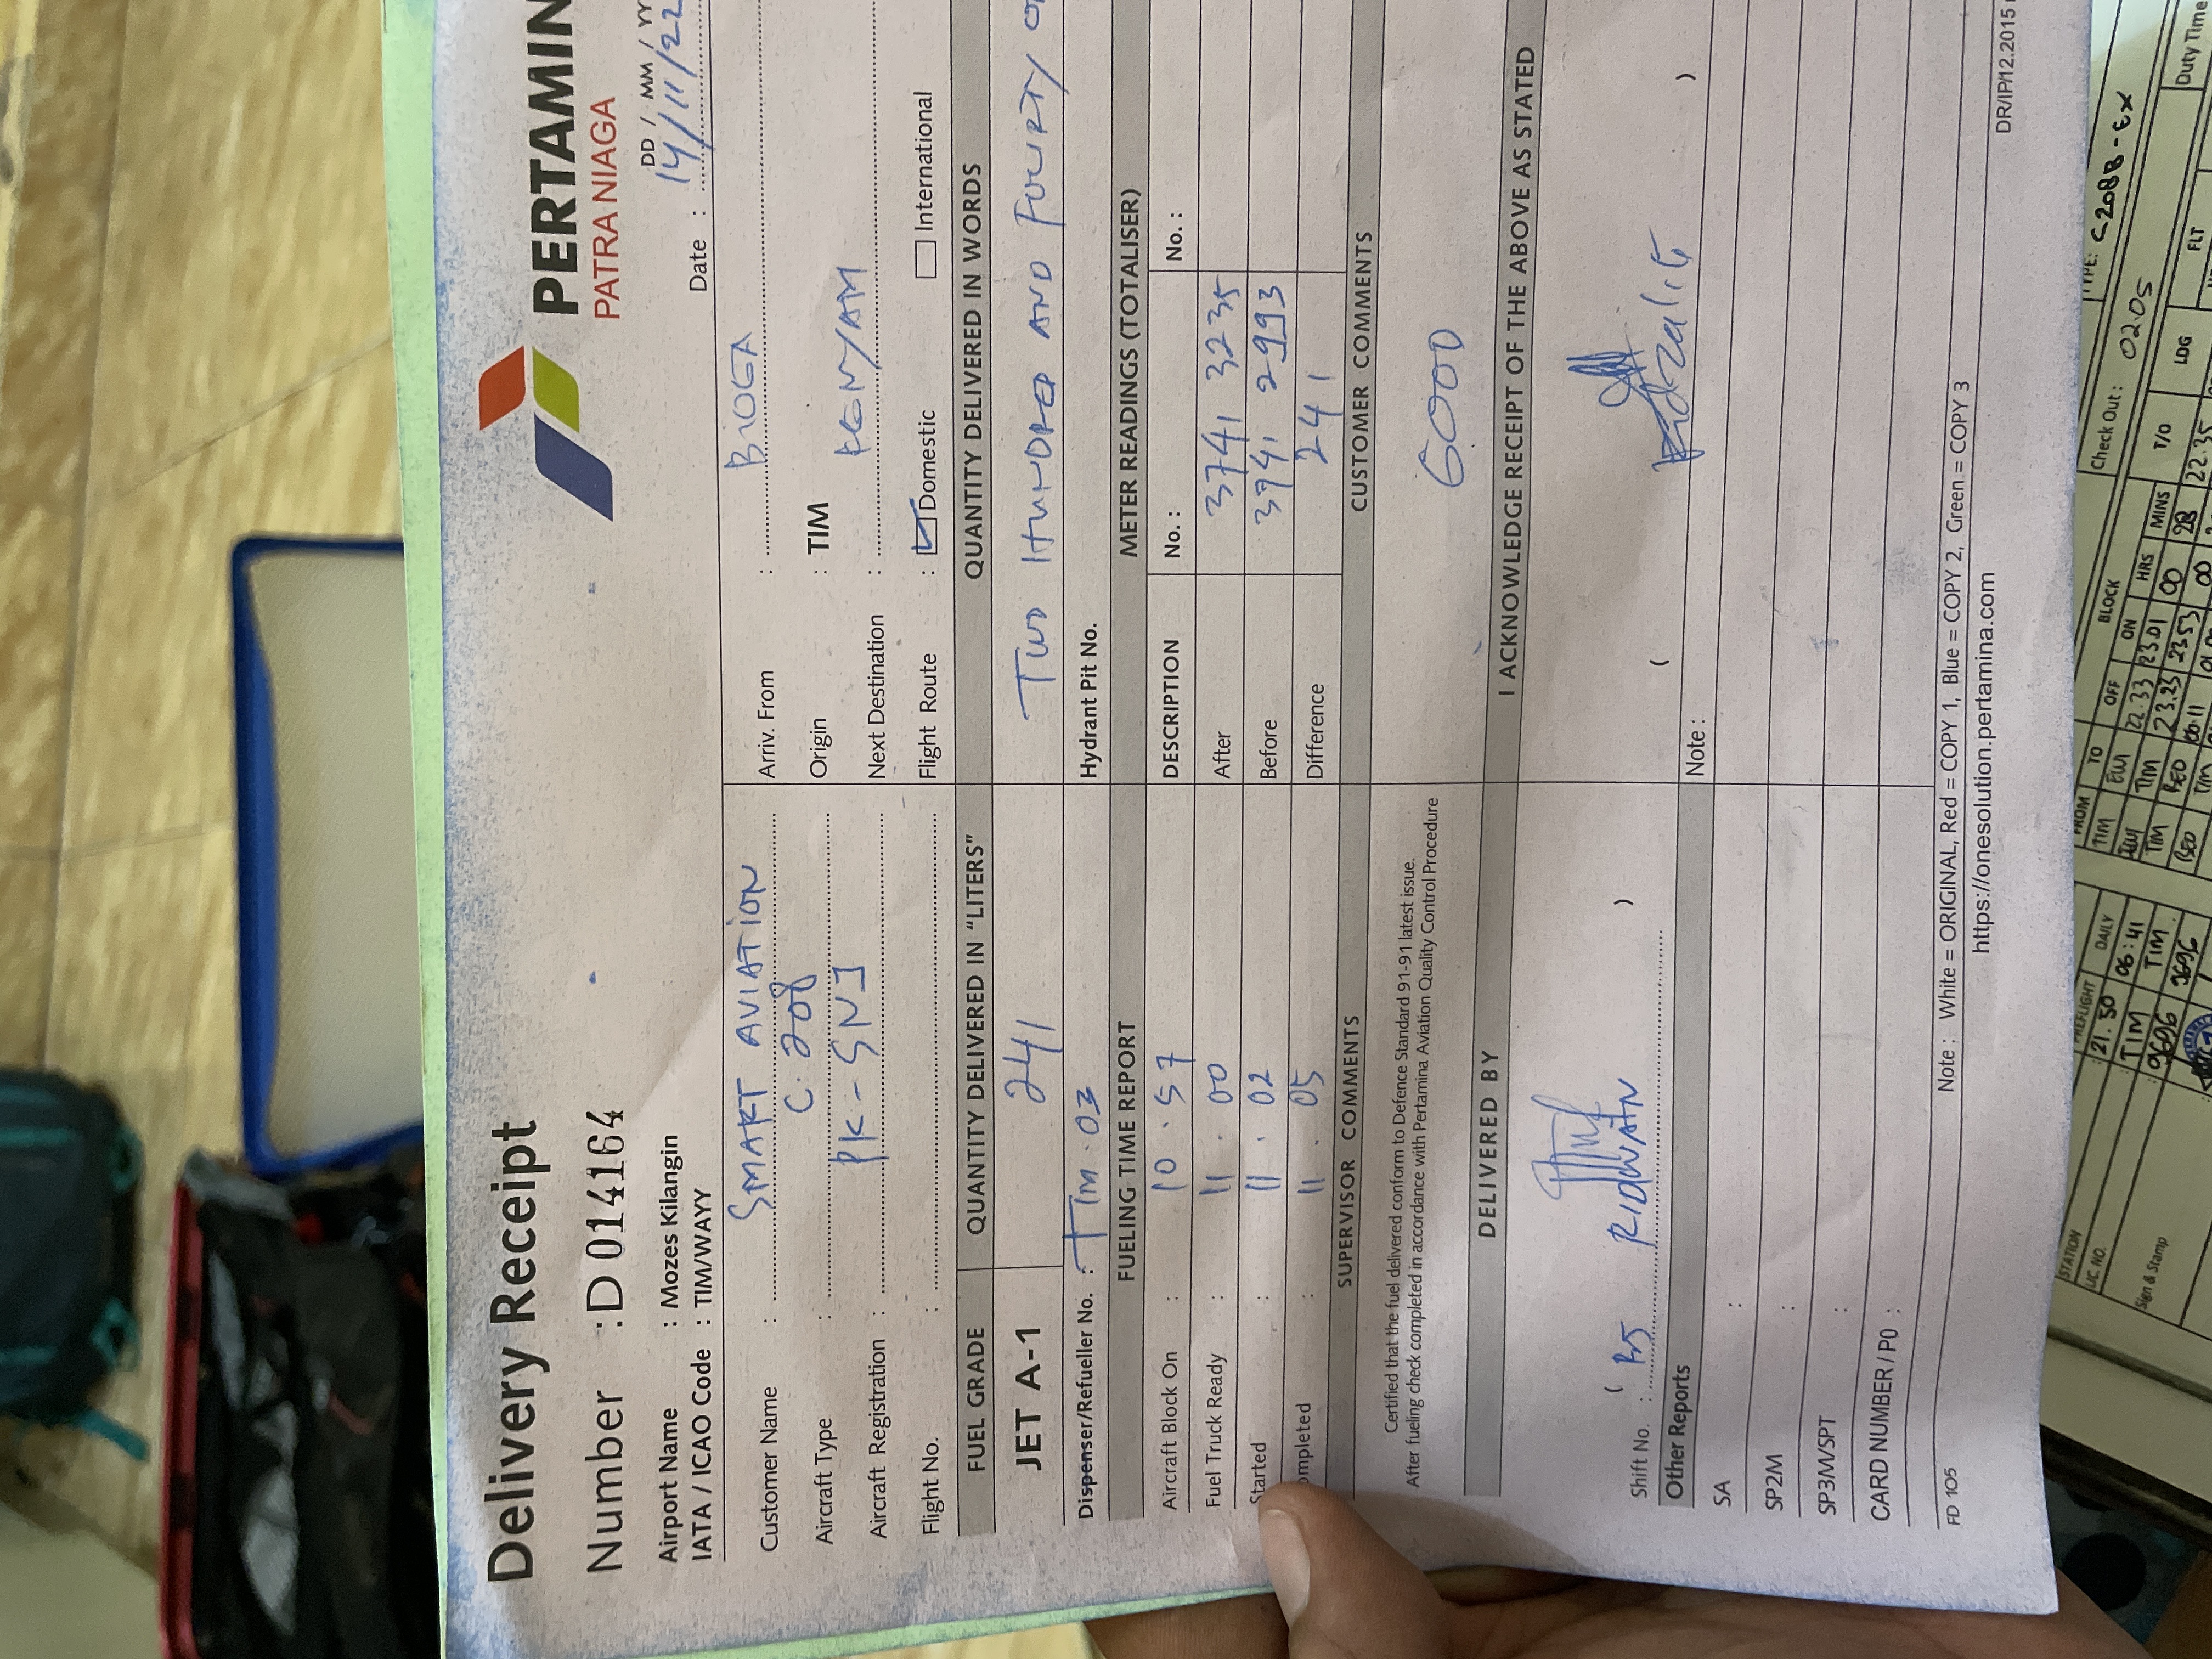 Delivery Receipt
PERTAMIN
PATRA NIAGA
Number : D014164
DD / MM / YY
Date : 14/11/22
Airport Name : Mozes Kilangin
IATA / ICAO Code : TIM/WAYY
Customer Name : SMART AVIATION
Arriv. From : BIOGA
Aircraft Type : C 208
Origin : TIM
Aircraft Registration : PK-SNJ
Next Destination : KENYAM
Flight No. :
Flight Route : Domestic International
FUEL GRADE QUANTITY DELIVERED IN "LITERS" QUANTITY DELIVERED IN WORDS
JET A-1 241 TWO HUNDRED AND FOURTY
Dispenser/Refueller No. : TIM.03 Hydrant Pit No.
FUELING TIME REPORT METER READINGS (TOTALISER)
DESCRIPTION No. : No. :
Aircraft Block On : 10.57
Fuel Truck Ready : 11.00 After 3741 3235
Started : 11.02 Before 3741 2993
ompleted : 11.05 Difference 241
SUPERVISOR COMMENTS CUSTOMER COMMENTS
Certified that the fuel delivered conform to Defence Standard 91-91 latest issue.
After fueling check completed in accordance with Pertamina Aviation Quality Control Procedure
6000
DELIVERED BY I ACKNOWLEDGE RECEIPT OF THE ABOVE AS STATED
RIDWAN
Shift No. : ( ) ( )
Other Reports Note :
SA :
SP2M :
SP3M/SPT :
CARD NUMBER / PO :
FD 105
Note : White = ORIGINAL, Red = COPY 1, Blue = COPY 2, Green = COPY 3
https://onesolution.pertamina.com
DR/IP/12.2015
TYPE: C208B-EX
Check Out : 02.05
Duty Time
FROM TO BLOCK T/O LDG FLT
OFF ON HRS MINS
TIM 22.33 23.01 00 28 22.35
TIM 23.23 23.53 00
BEO TIM 00
PREFLIGHT DAILY
21.50 06:41
STATION TIM TIM
LIC NO. 9696 9696
Sign & Stamp